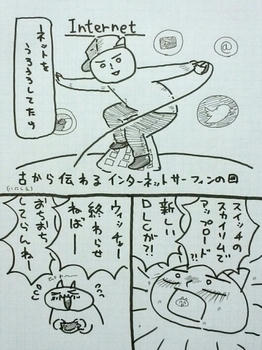 Internet
ネットを
うろうろしてたら
@
古から伝わるインターネットサーフィンの図
(いにしえ)
スイッチの
スカイリムで
アップロード?!
新しい
DLCが?!
ウィッチャー
終わらせ
ねばー
おちおち
してらんねー